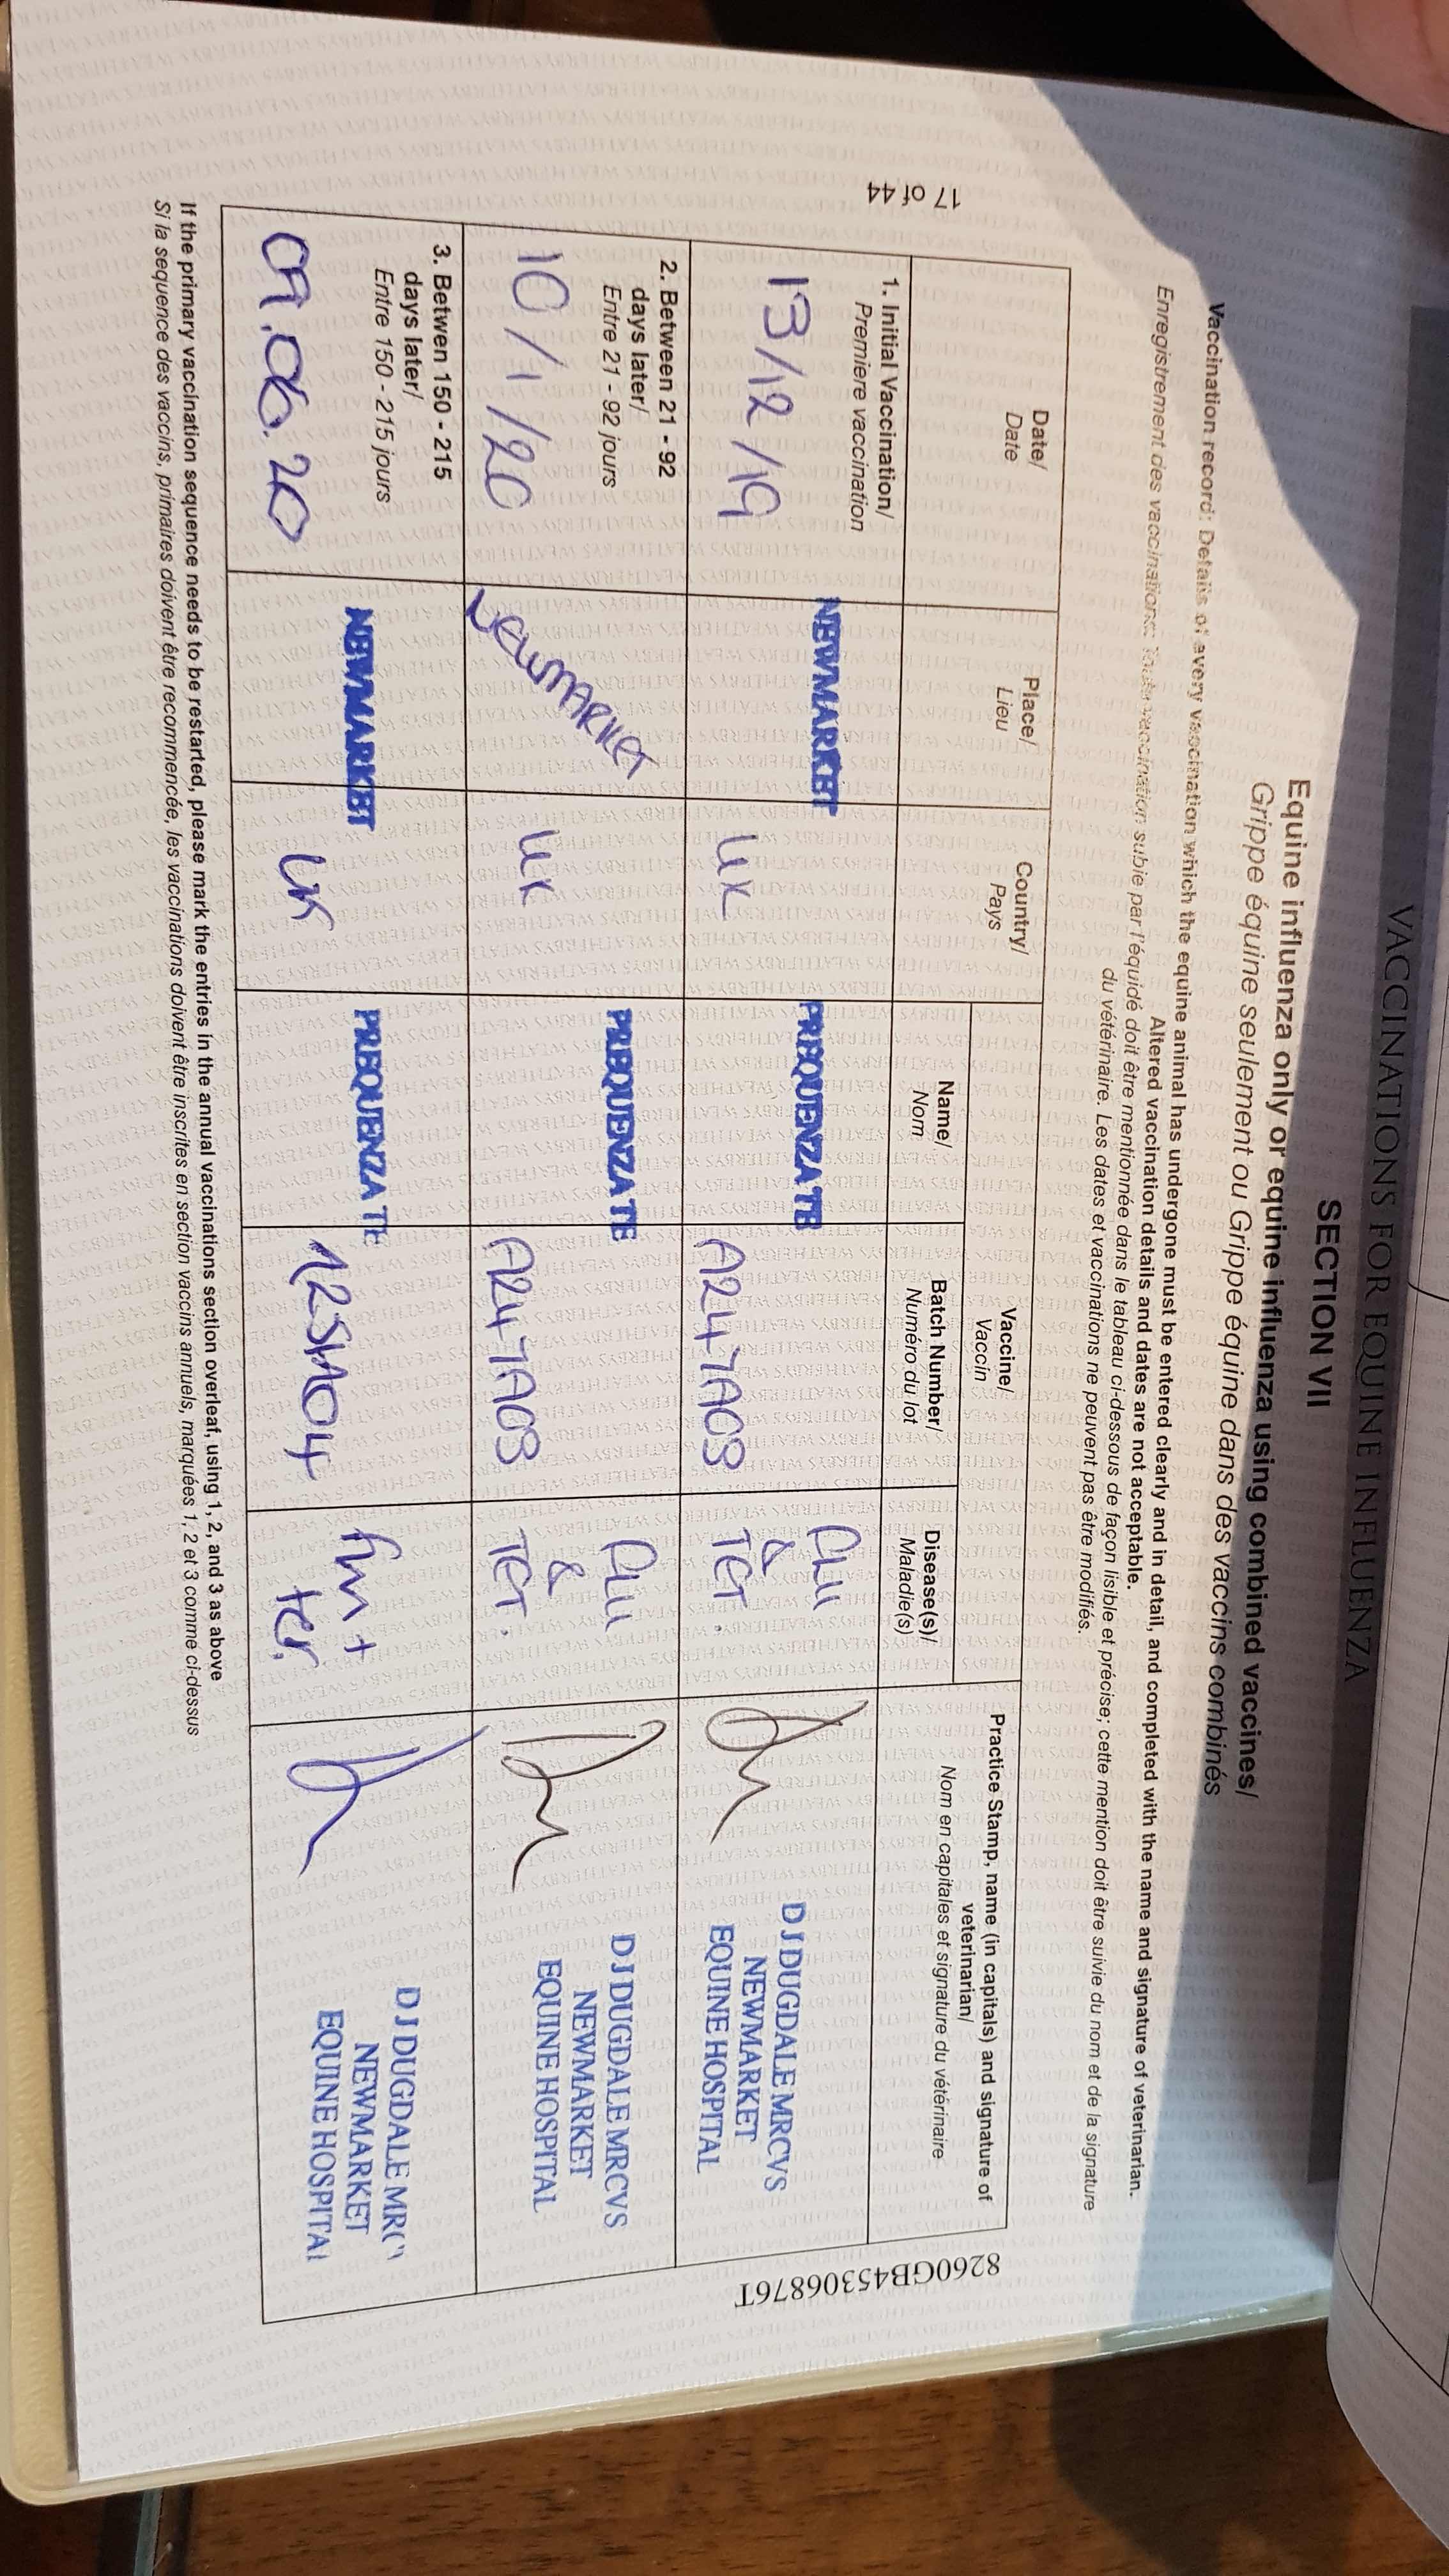 VACCINATIONS FOR EQUINE INFLUENZA
SECTION VII
Equine influenza only or equine influenza using combined vaccines/
Grippe équine seulement ou Grippe équine dans des vaccins combinés
Vaccination record: Details of every vaccination which the equine animal has undergone must be entered clearly and in detail, and completed with the name and signature of veterinarian.
Altered vaccination details and dates are not acceptable.
Enregistrement des vaccinations: Toute vaccination subie par l'équidé doit être mentionnée dans le tableau ci-dessous de façon lisible et précise; cette mention doit être suivie du nom et de la signature
du vétérinaire. Les dates et vaccinations ne peuvent pas être modifiés.
Date/
Date
Place/
Lieu
Country/
Pays
Vaccine/
Vaccin
Name/
Nom
Batch Number/
Numéro du lot
Disease(s)/
Maladie(s)
Practice Stamp, name (in capitals) and signature of
veterinarian/
Nom en capitales et signature du vétérinaire
1. Initial Vaccination/
Premiere vaccination
13/12/19
NEWMARKET
UK
PREQUENZA TE
A247A03
Flu
&
TET.
D J DUGDALE MRCVS
NEWMARKET
EQUINE HOSPITAL
2. Between 21 - 92
days later/
Entre 21 - 92 jours
10/1/20
NEWMARKET
UK
PREQUENZA TE
A247A03
Flu
&
TET.
D J DUGDALE MRCVS
NEWMARKET
EQUINE HOSPITAL
3. Betwen 150 - 215
days later/
Entre 150 - 215 jours
09.06.20
NEWMARKET
UK
PREQUENZA TE
tet.
D J DUGDALE MRC
NEWMARKET
EQUINE HOSPITAL
If the primary vaccination sequence needs to be restarted, please mark the entries in the annual vaccinations section overleaf, using 1, 2, and 3 as above
Si la sequence des vaccins, primaires doivent être recommencée, les vaccinations doivent être inscrites en section vaccins annuels, marquées 1, 2 et 3 comme ci-dessus
17 of 44
8260GB45306876T